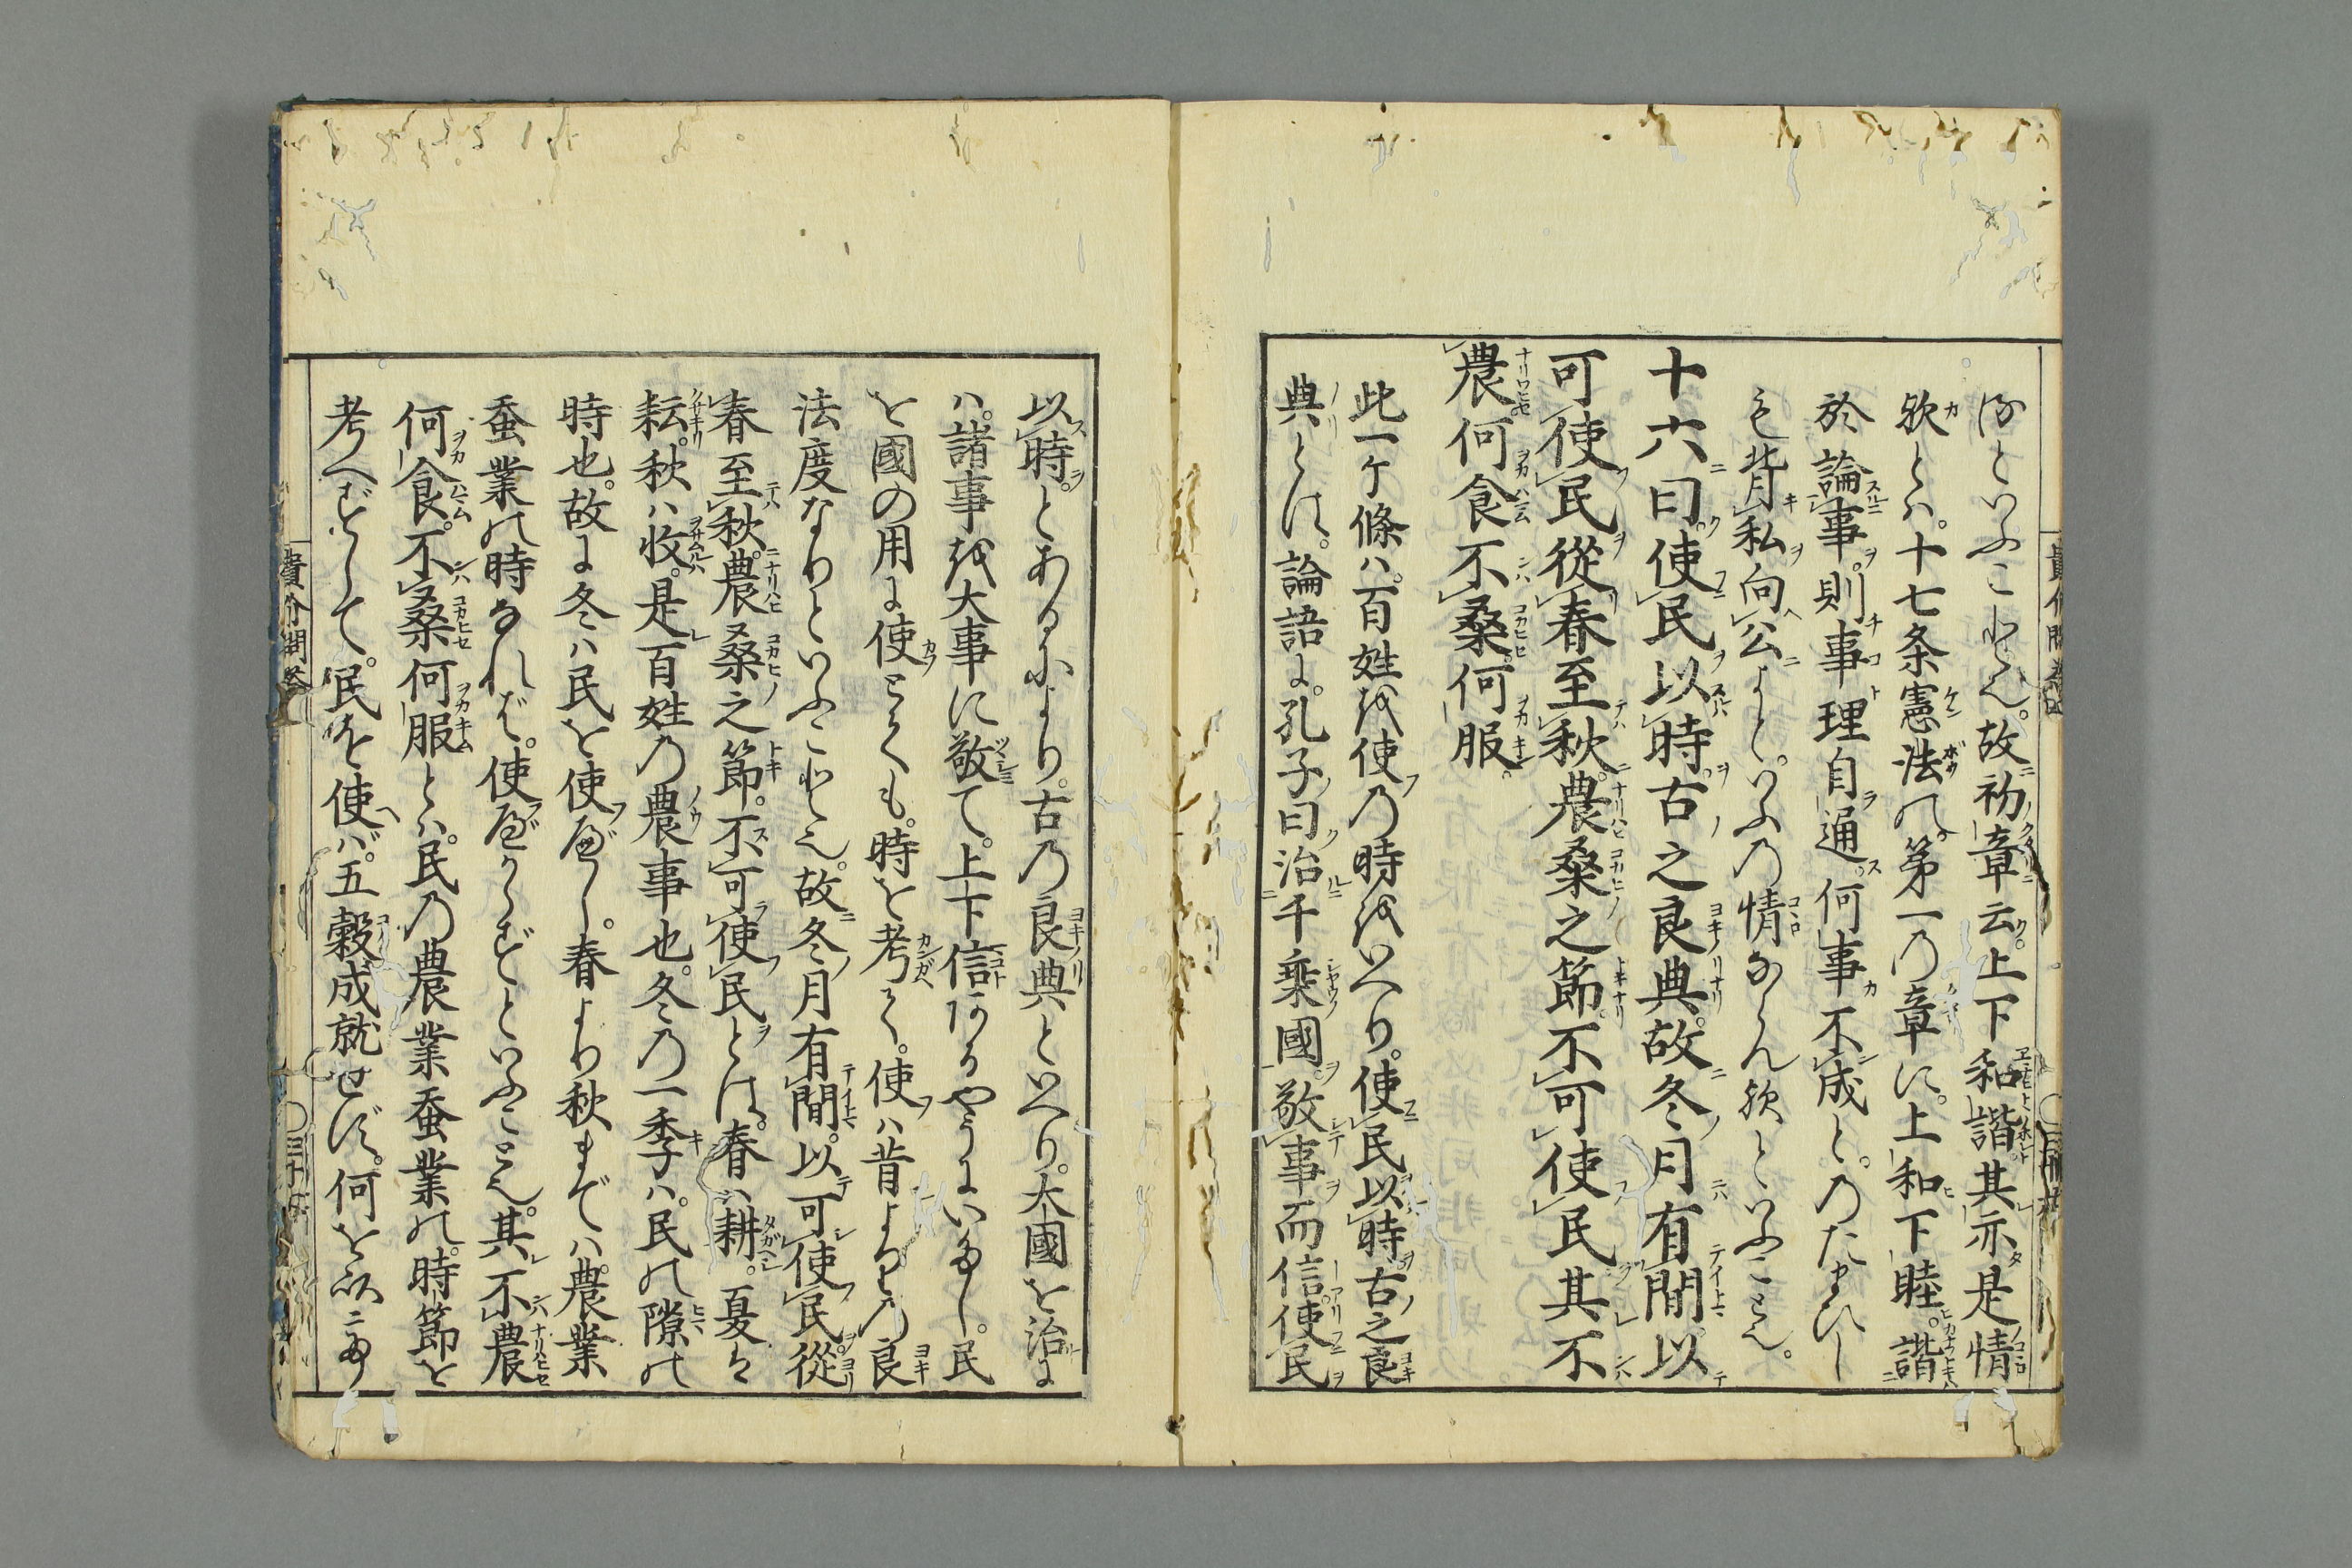 得といふこと也。故初章云。上下和諧其亦是情
歟とハ。十七条憲法の。第一の章に。上和下睦。諧
於論事。則事理自通。何事不成と。のたまひし
も背私向公よと。いふの情ならん歟といふこと也。
十六曰。使民以時。古之良典。故冬月有間。以
可使民。從春至秋。農桑之節。不可使民。其不
農何食。不桑。何服。
此一ケ條ハ。百姓を使の時をいへり。使民以時古之良
典とは。論語に。孔子曰治千乘國。敬事而信使民
以時。とあるにより。古の良典といへり。大國を治に
ハ。諸事を大事に敬て。上下信あるやうにいたし。民
を國の用に使とても。時を考て。使ハ昔よりの良
法度なりといふこと也。故冬月有間。以可使民。從
春至秋。農桑之節。不可使民とは。春ハ耕。夏は
耘。秋ハ收。是百姓の農事也。冬の一季ハ。民の隙の
時也。故に冬ハ民を使べし。春より秋までハ。農業
蚕業の時なれば。使べからずといふこと也。其不農
何食。不桑何服とハ。民の農業蚕業の。時節を
考へずして。民を使バ。五穀成就せず。何を以